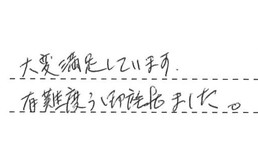 大変満足しています.
有難度う御座居ました。